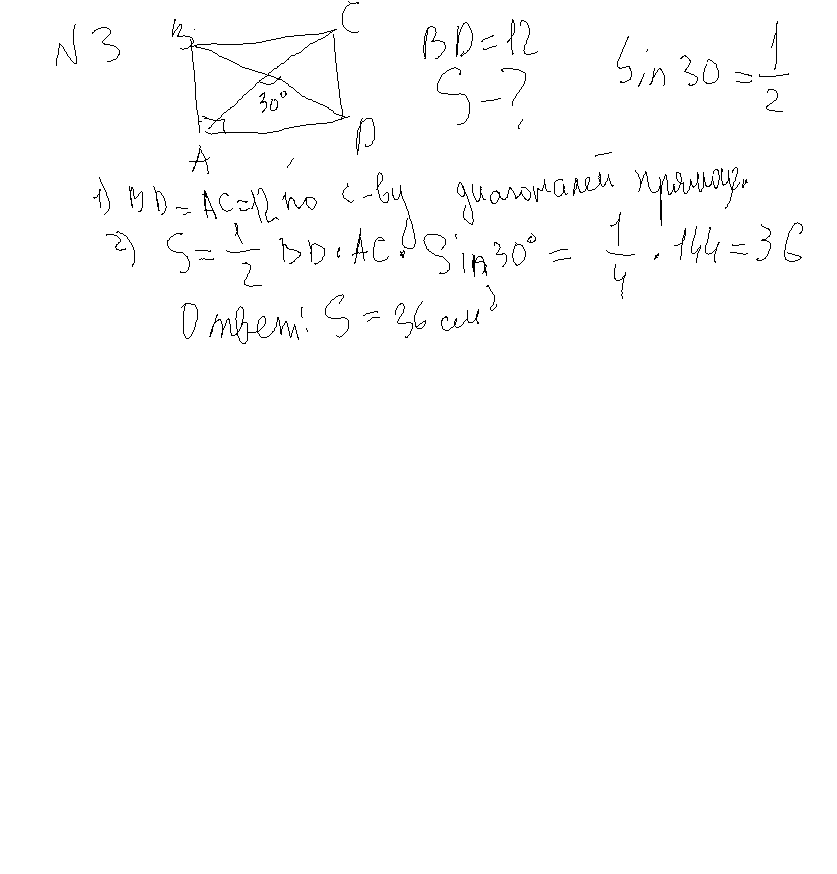 N 3 B C BD = 12 Sin 30 = 1/2
30° S - ?
A D
1) BD = AC = 12 по с-ву диагоналей прямоуг.
2) S = 1/2 BD · AC · Sin 30° = 1/4 · 144 = 36
Ответ: S = 36 см²